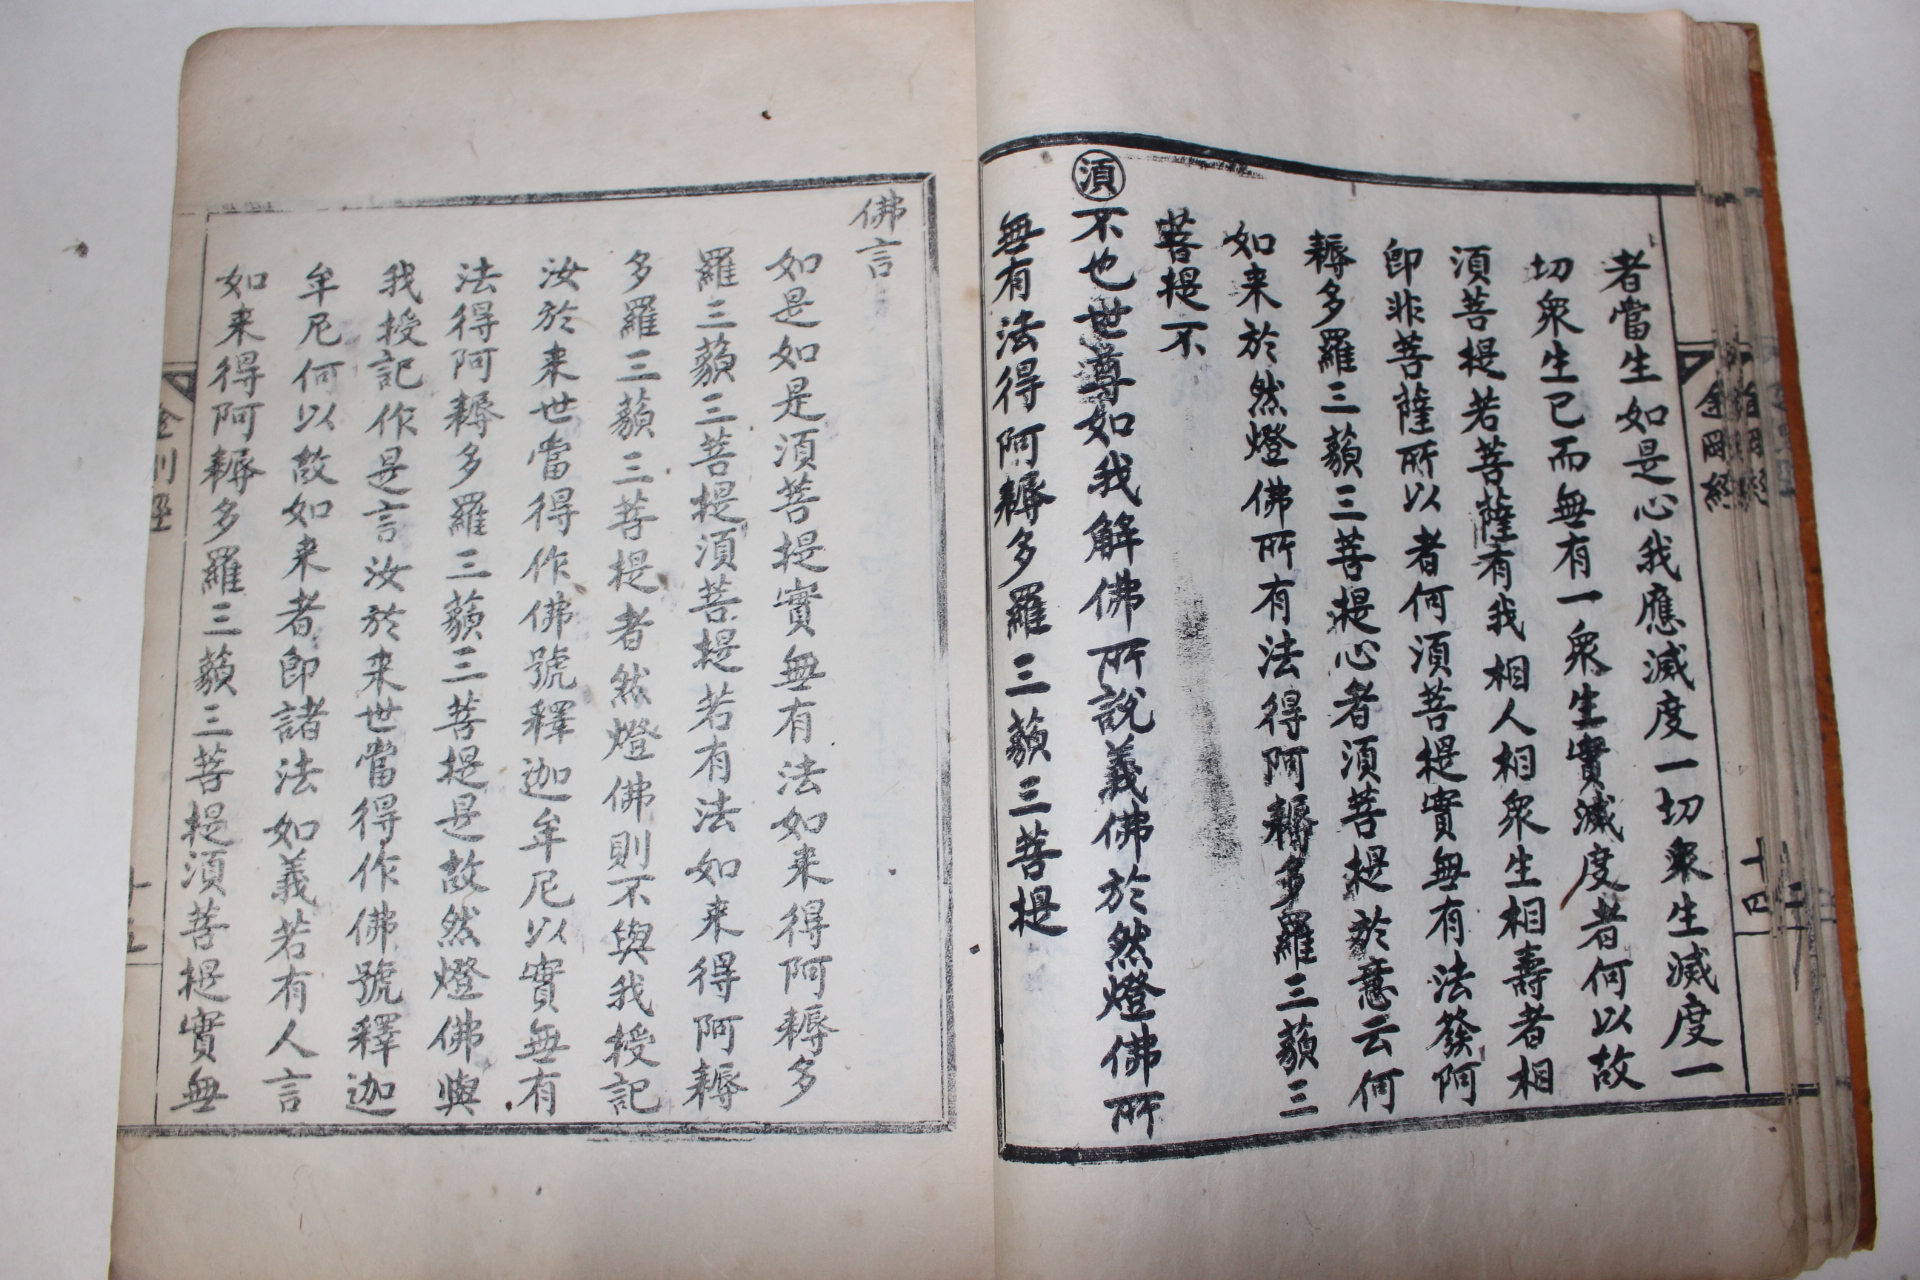 者當生如是心我應滅度一切衆生滅度一
切衆生已而無有一衆生實滅度者何以故
須菩提若菩薩有我相人相衆生相壽者相
卽非菩薩所以者何須菩提實無有法發阿
耨多羅三藐三菩提心者須菩提於意云何
如来於然燈佛所有法得阿耨多羅三藐三
菩提不
須不也世尊如我解佛所說義佛於然燈佛所
無有法得阿耨多羅三藐三菩提
金岡經
十四
佛言
如是如是須菩提實無有法如来得阿耨多
羅三藐三菩提須菩提若有法如来得阿耨
多羅三藐三菩提者然燈佛則不與我授記
汝於来世當得作佛號釋迦牟尼以實無有
法得阿耨多羅三藐三菩提是故然燈佛與
我授記作是言汝於来世當得作佛號釋迦
牟尼何以故如来者卽諸法如義若有人言
如来得阿耨多羅三藐三菩提須菩提實無